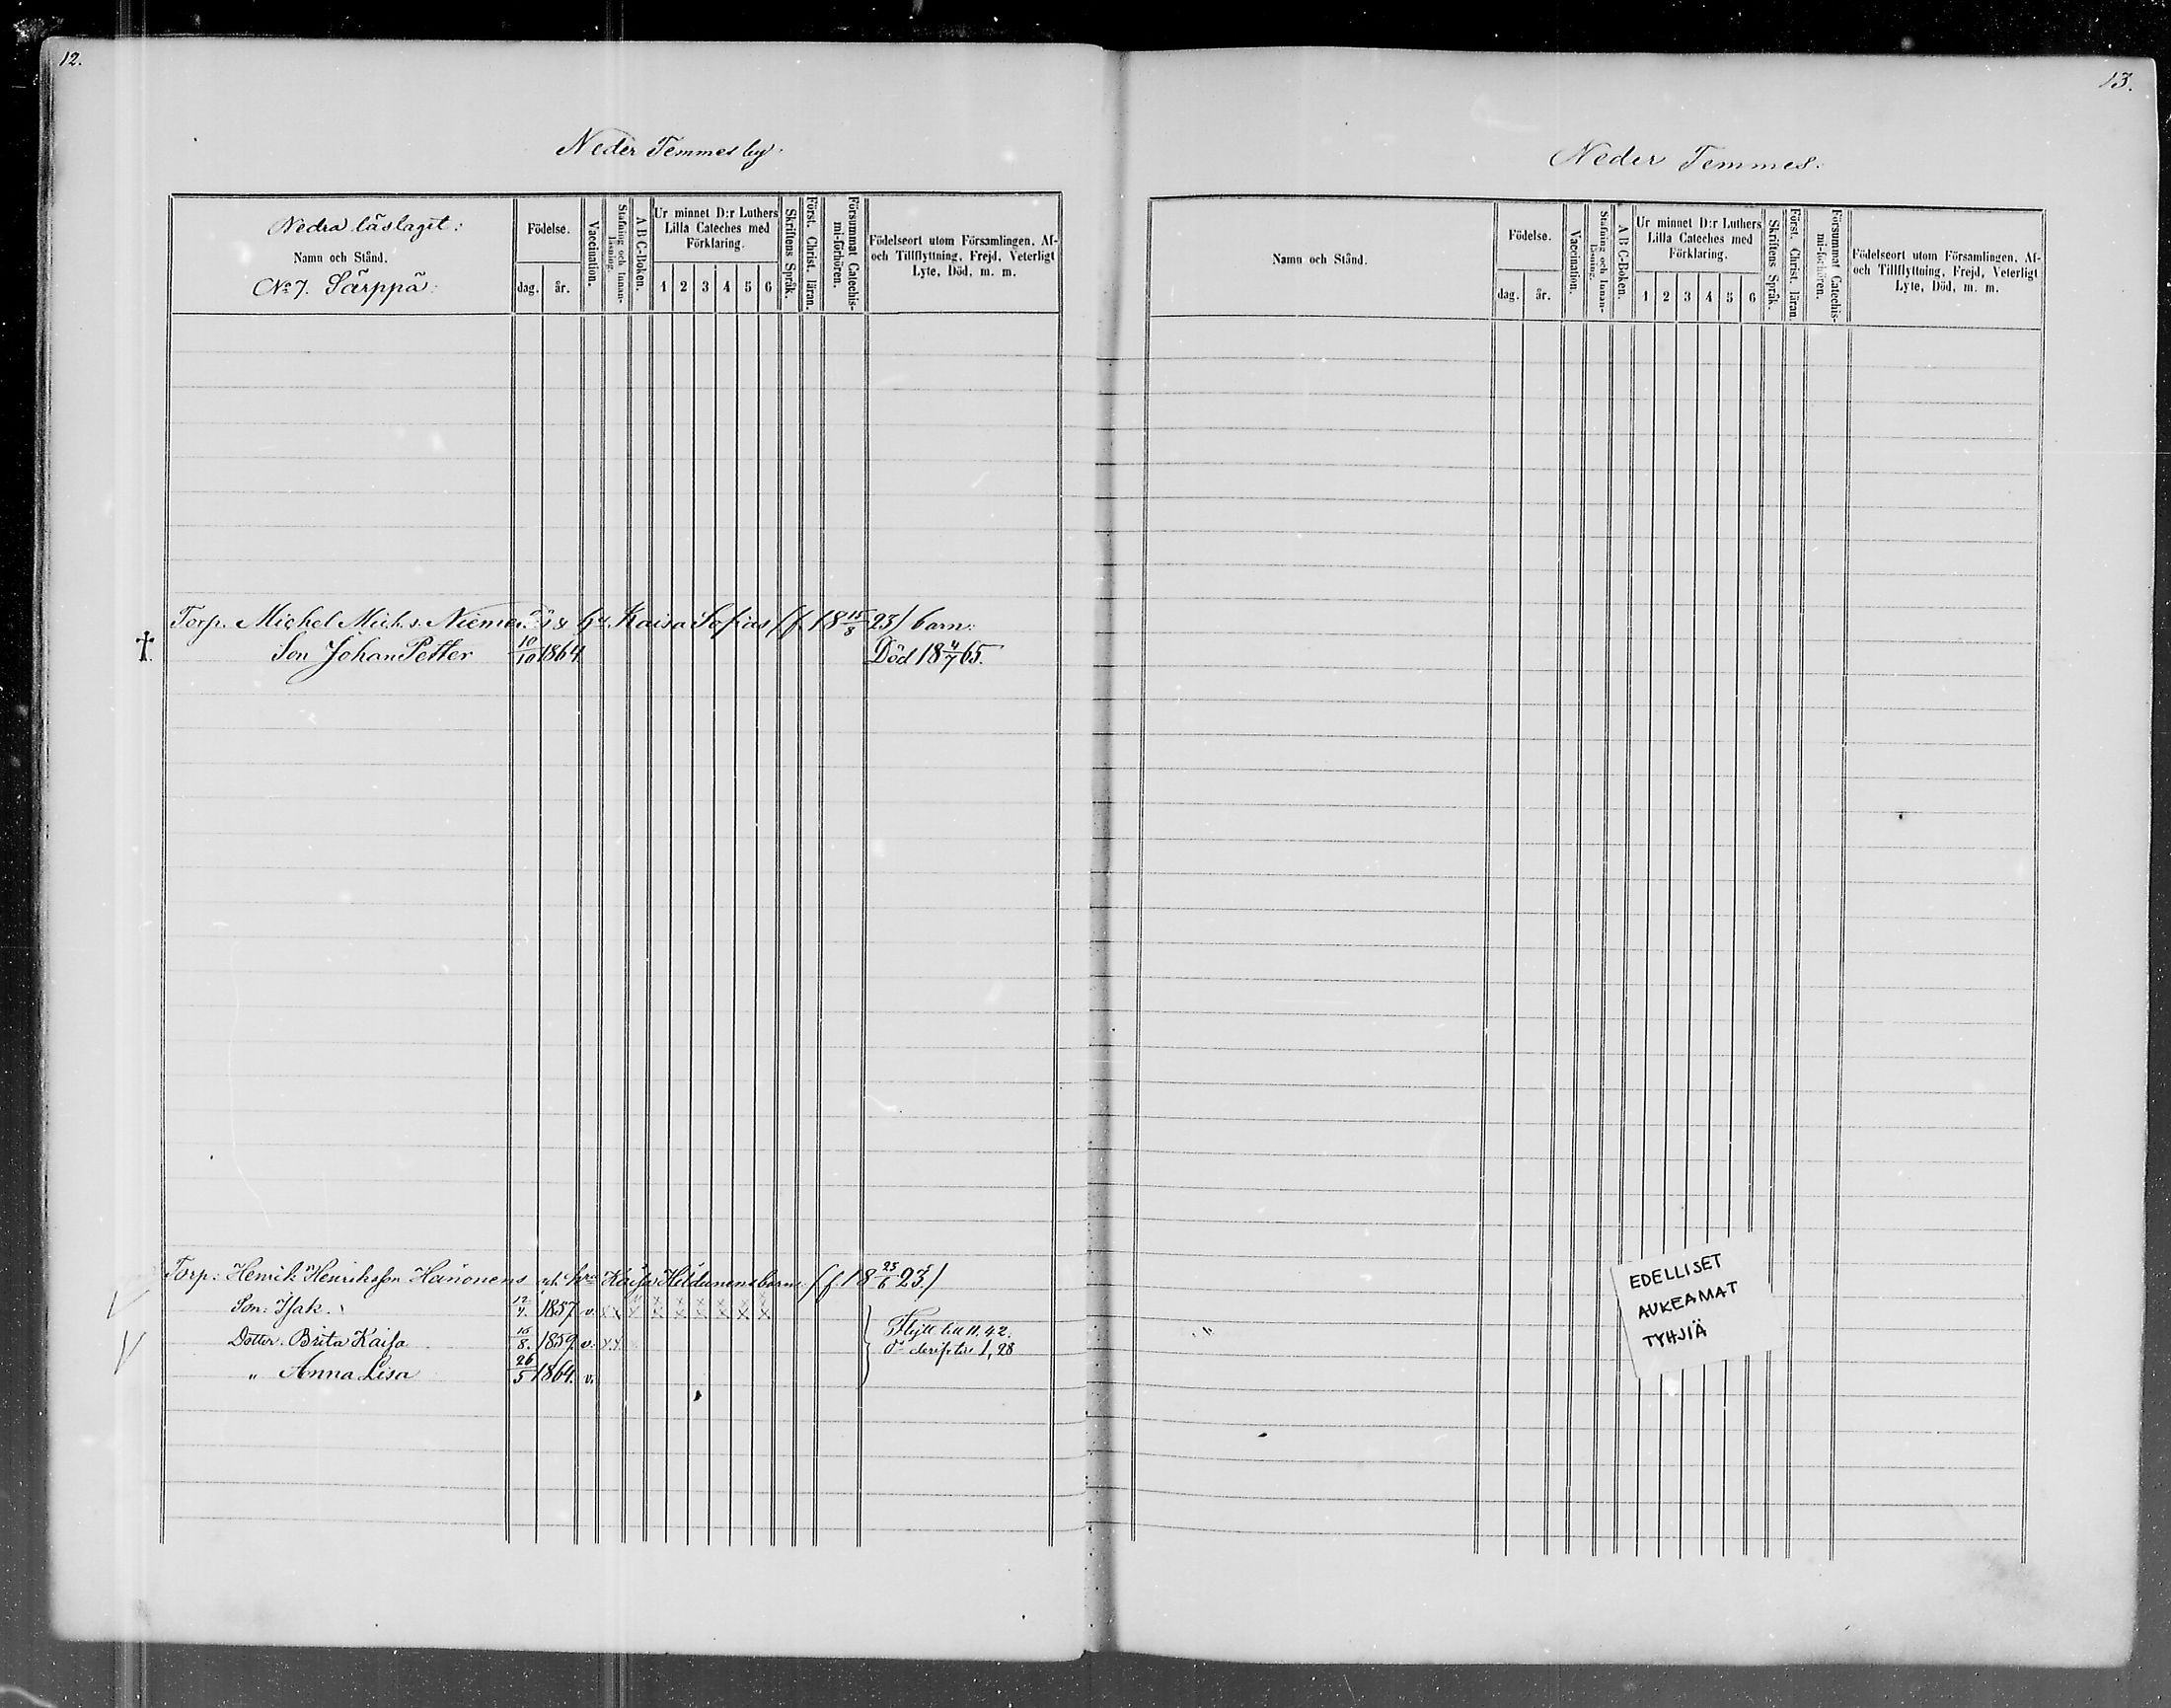 12.
Neder Temmes by.
Nedra läslaget:
Namn och Stånd.
No 7. Särppä:
Födelse.
dag. år.
Vaccination.
Stafning och Innan-läsning.
A B C-Boken.
Ur minnet D:r Luthers
Lilla Cateches med
Förklaring.
1 2 3 4 5 6
Skriftens Språk.
Först. Christ. läran.
Försummat Catechis-mi-förhören.
Födelseort utom Församlingen, Af-
och Tillflyttning, Frejd, Veterligt
Lyte, Död, m. m.
Torp. Michel Michs. & Kaisa Sofias (f. 18 15/8 23) barn:
†. Son Johan Petter 10/10 1864 Död 18 4/7 65.
Torp: Henrik Henriksson och Kaisa barn (f. 18 25/6 23)
Son: Isak. 12/7. 1857 v. x x x x x x x x
Dotter. Brita Kaisa 16/8. 1859. v. x x Flytt till II. 42.
d:o 1, 28
„ Anna Lisa 26/5 1864. v.
13.
Neder Temmes.
Namn och Stånd.
Födelse.
dag. år.
Vaccination.
Stafning och Innan-läsning.
A B C-Boken.
Ur minnet D:r Luthers
Lilla Cateches med
Förklaring.
1 2 3 4 5 6
Skriftens Språk.
Först. Christ. läran.
Försummat Catechis-mi-förhören.
Födelseort utom Församlingen, Af-
och Tillflyttning, Frejd, Veterligt
Lyte, Död, m. m.
EDELLISET
AUKEAMAT
TYHJIÄ